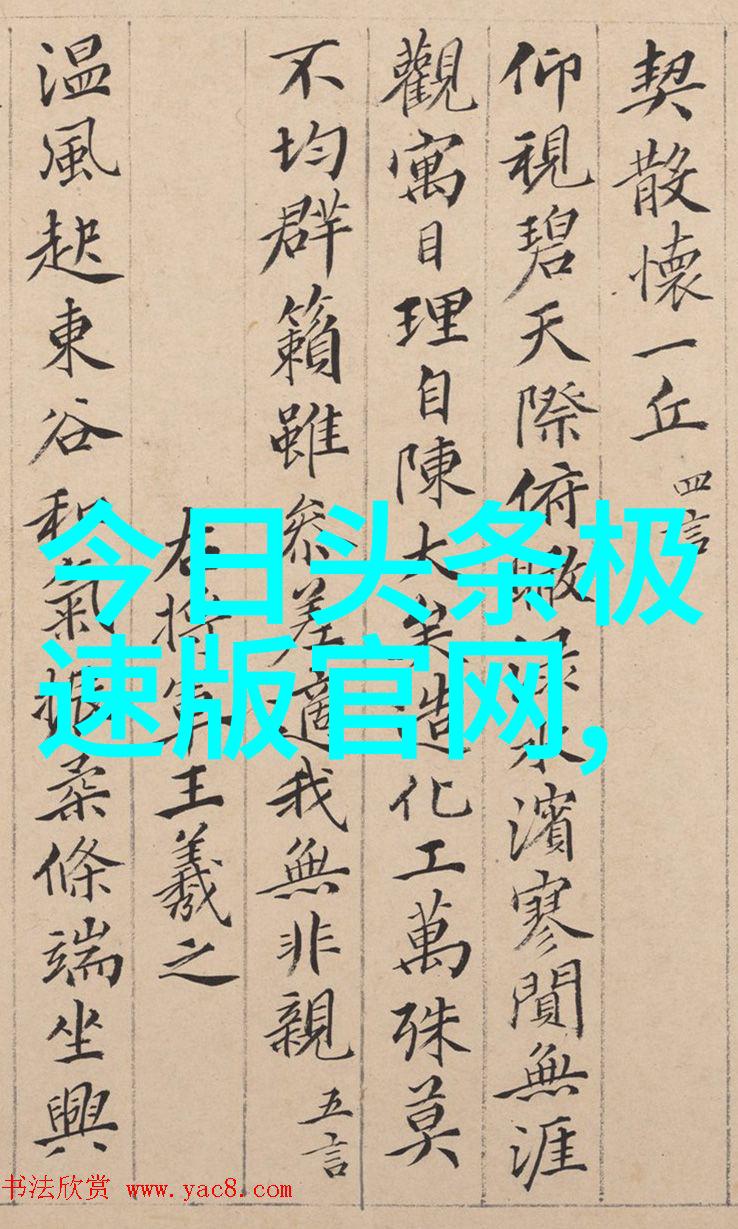 契散懷一丘 四言
仰視碧天際俯瞰淥水濱寥閴無涯
觀寓目理自陳大矣造化工萬殊莫
不均群籟雖叅差適我無非親 五言
右將軍王羲之
温風起東谷和氣振柔條端坐興
今日头条极
速版官网,
书法欣赏 www.yac8.com